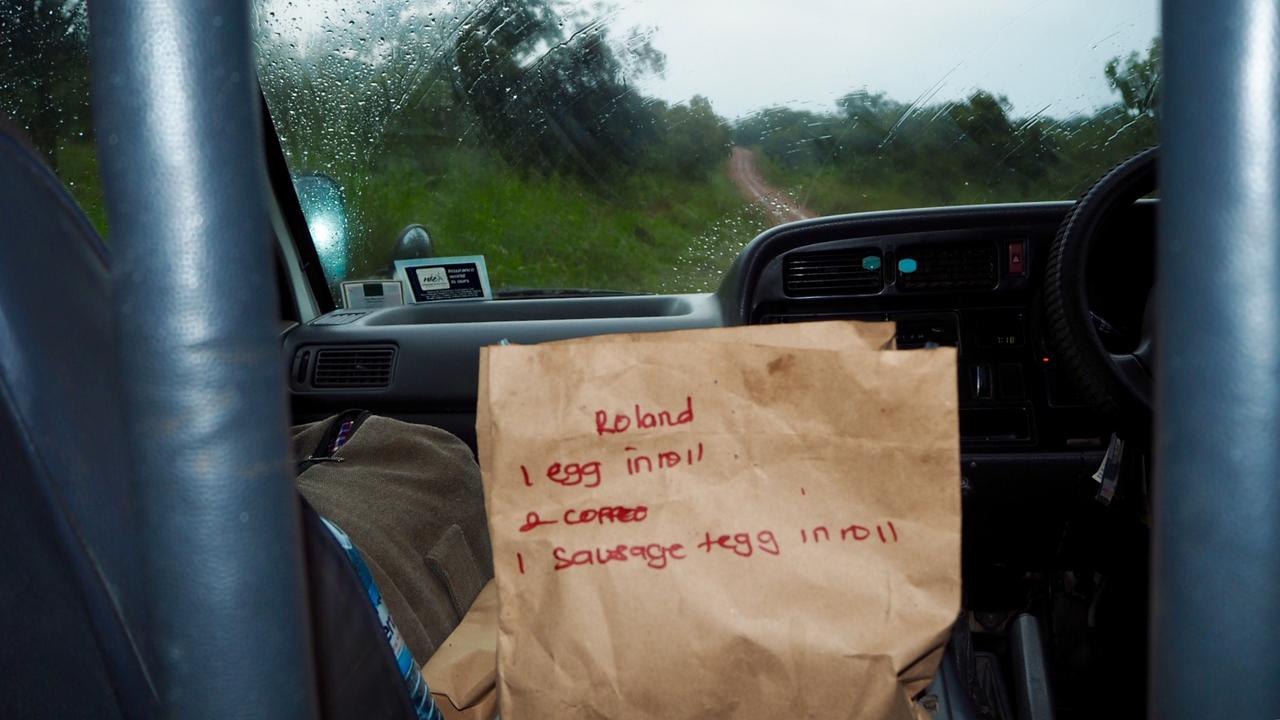 Insurance
world
is ours
7:10
Roland
1 egg in roll
2 COFFEE
1 Sausage + egg in roll